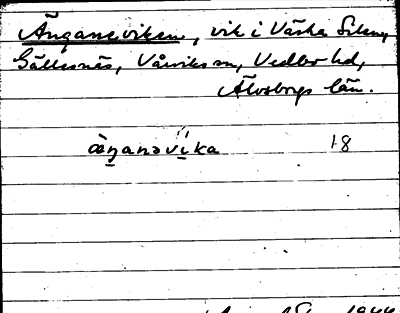 Änganeviken, vik i Västra Silen,
Gällesnäs, Vårviks sn, Vedbo hd,
Älvsborgs län.
ä̀ŋanəvíka 18